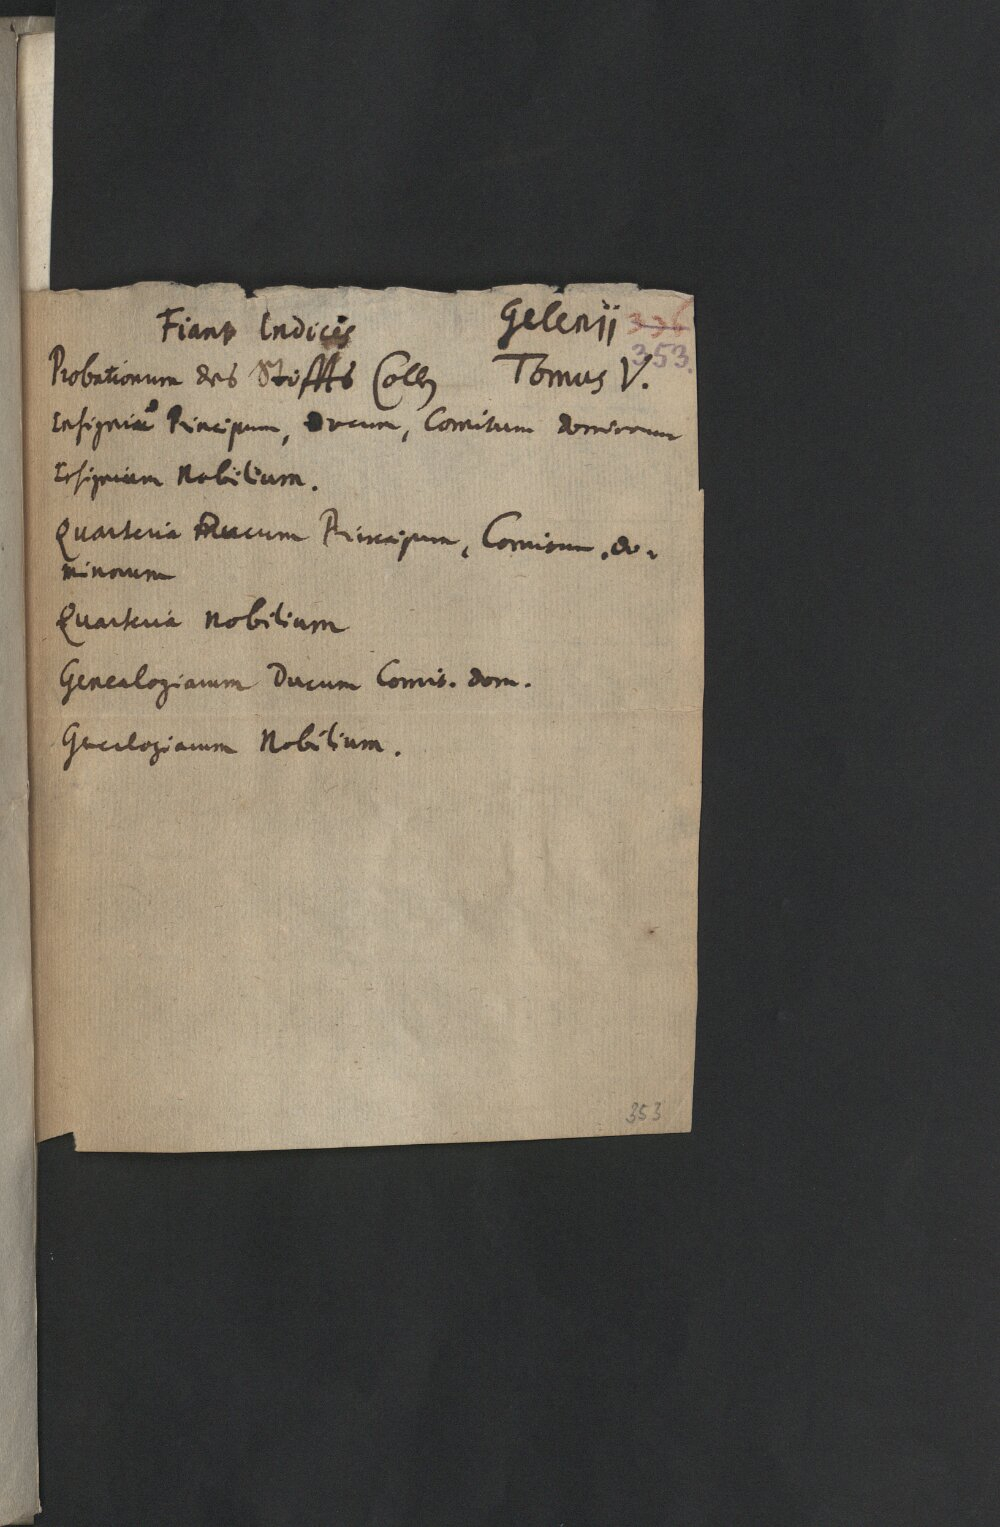 Gelenij 336
353.
Fiant Indices
Tomus V.
Probationum des Stiffts Colln
Insignia Principum, Ducum, Comitum dominorum
Insignium Nobilium.
Quarteria Ducum Principum, Comitum, do-
minorum
Quarteria Nobilium
Genealogiarum Ducum Comit. dom.
Genealogiarum Nobilium.
353